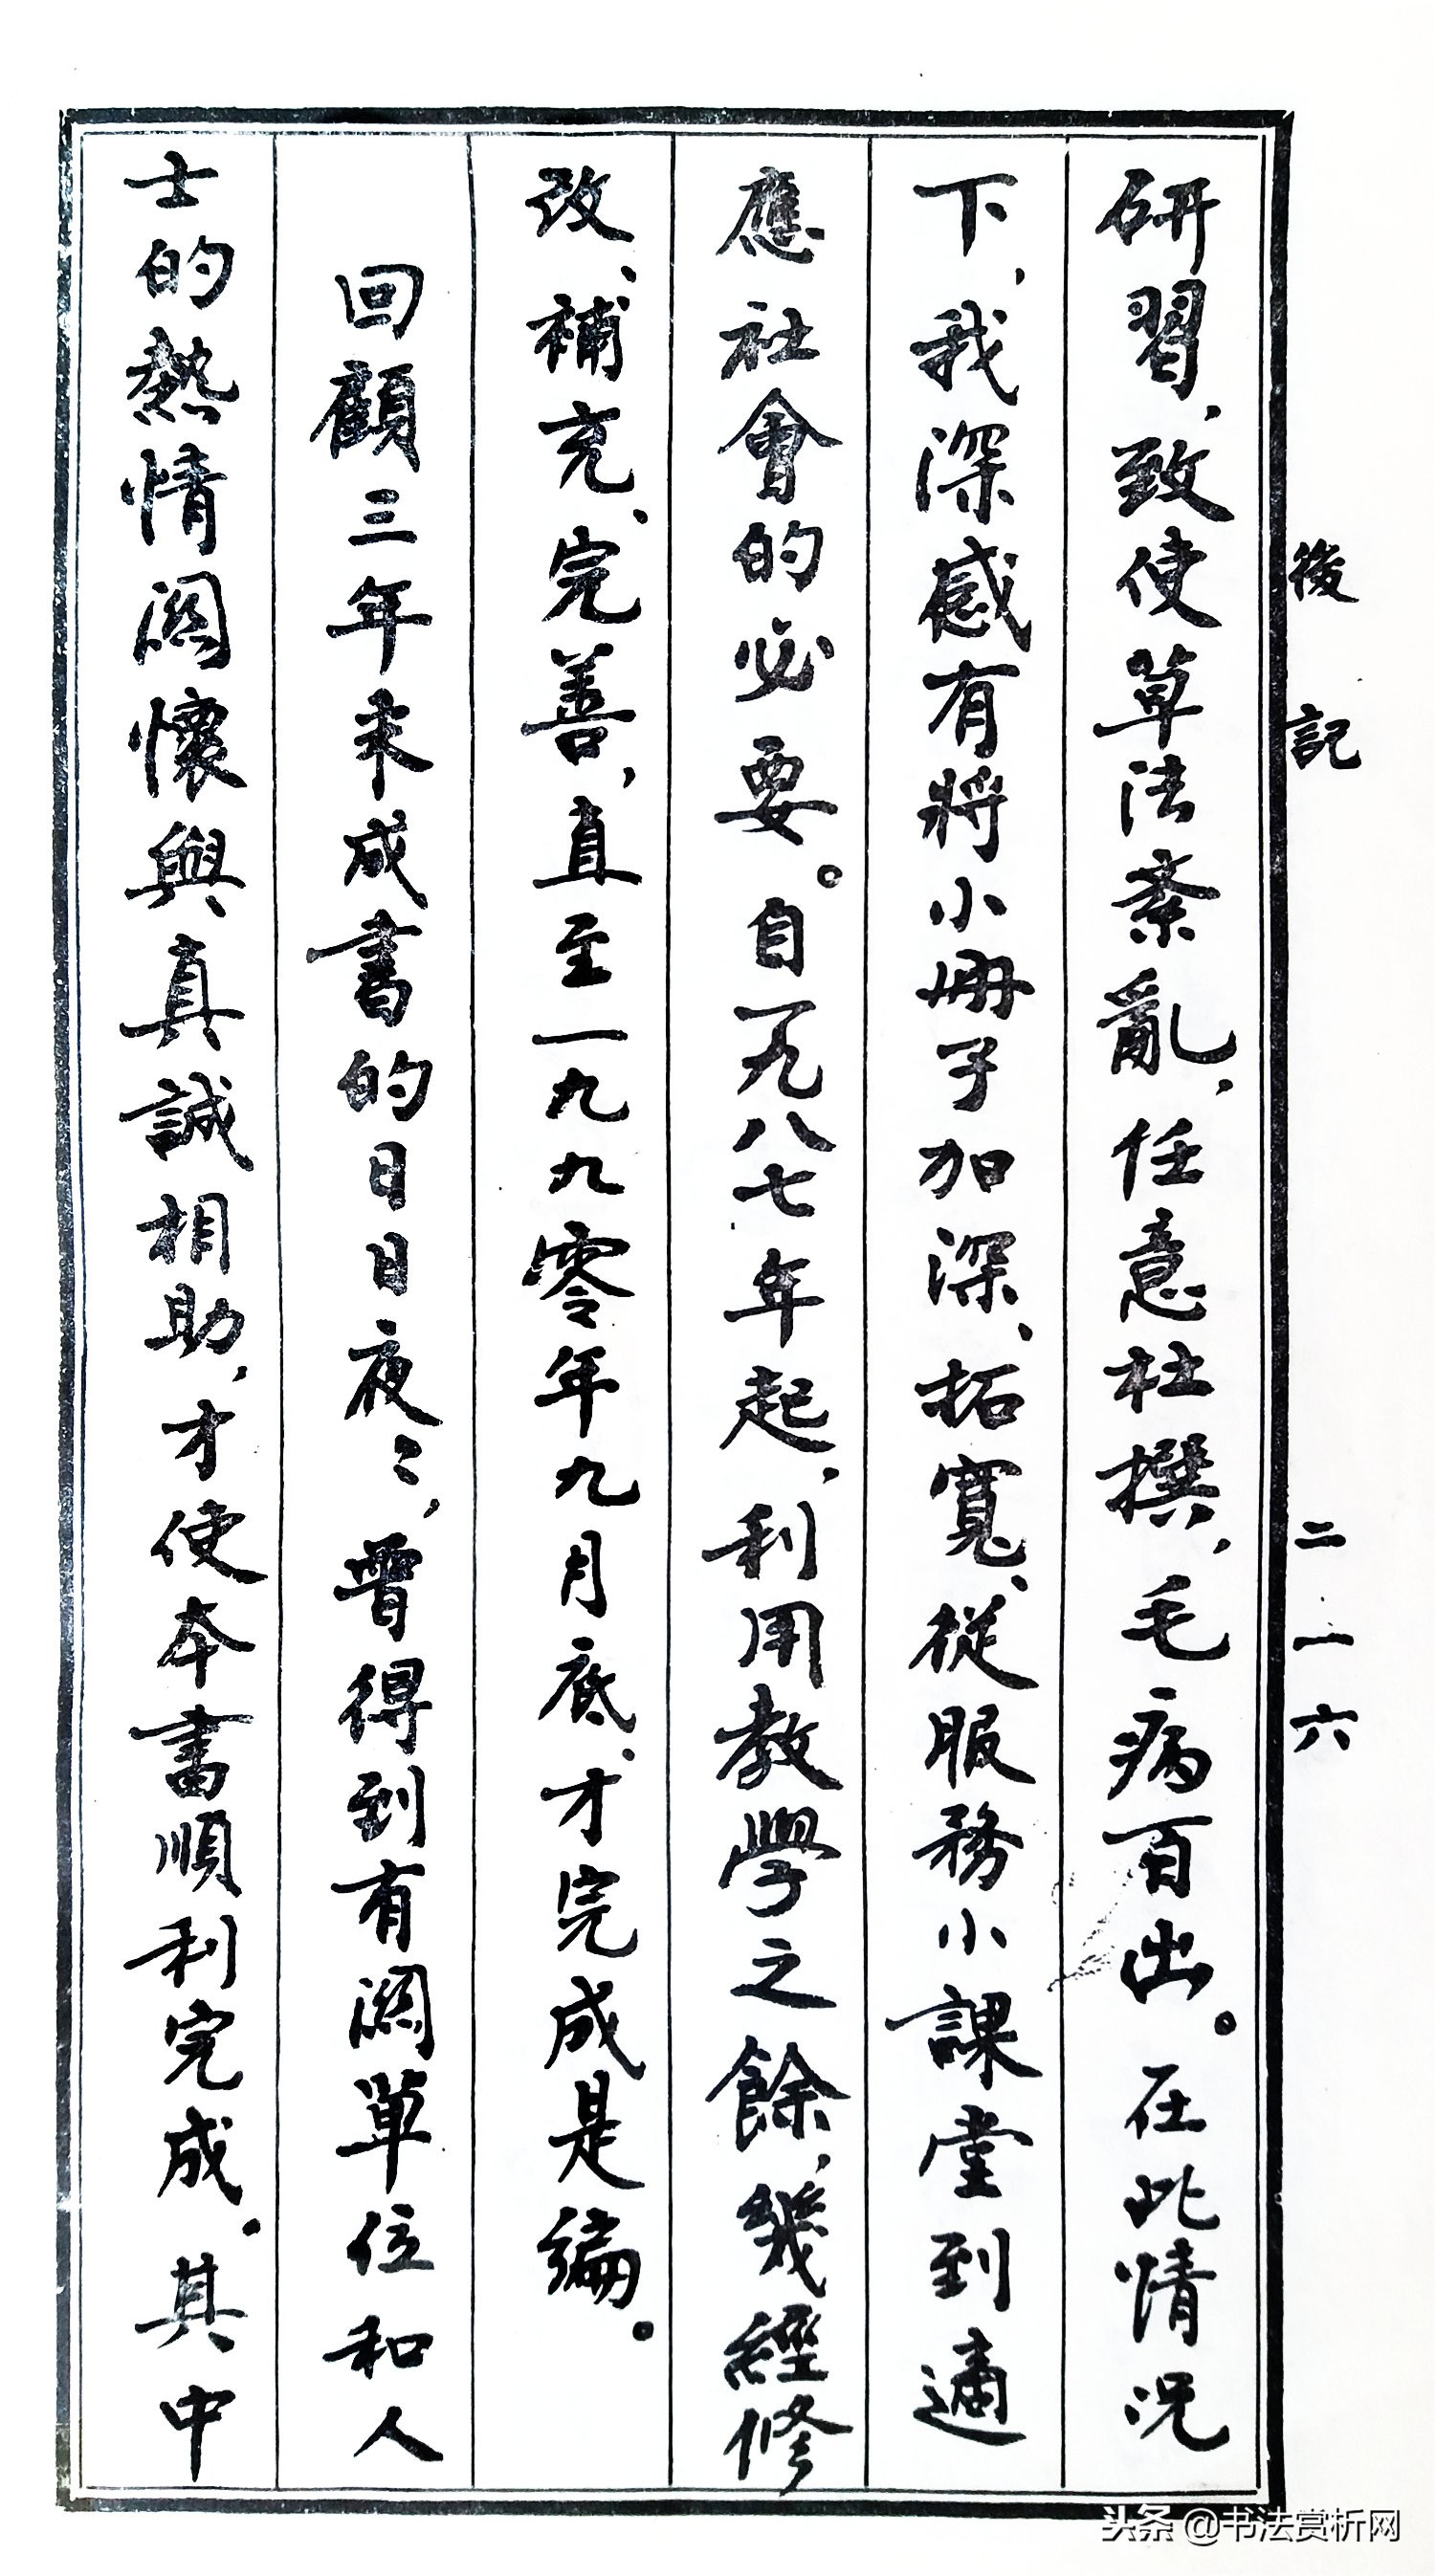 後記
二一六
研習，致使草法紊亂，任意杜撰，毛病百出。在此情況
下，我深感有將小冊子加深、拓寬、從服務小課堂到適
應社會的必要。自一九八七年起，利用教學之餘，幾經修
改、補充、完善，直至一九九零年九月底，才完成是編。
回顧三年來成書的日日夜〻，曾得到有關單位和人
士的熱情關懷與真誠相助，才使本書順利完成。其中
头条 @书法赏析网